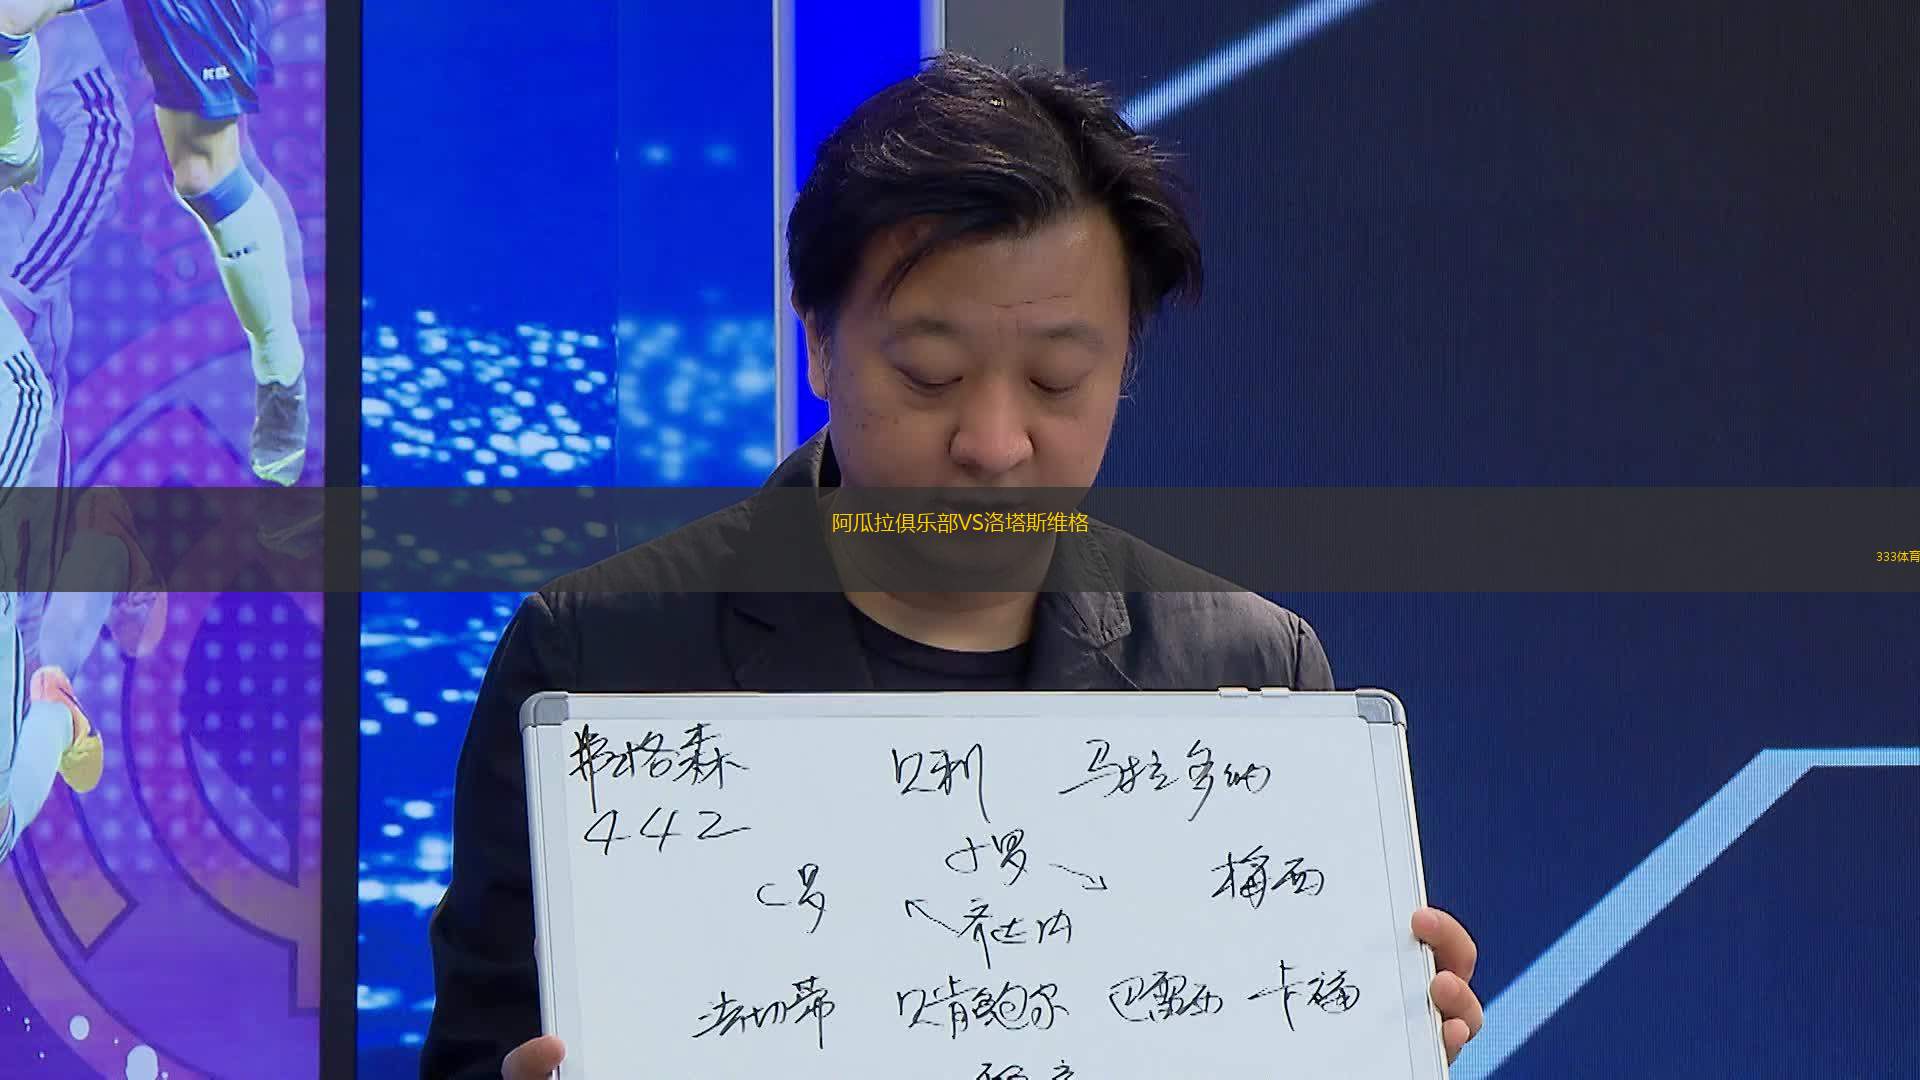 阿瓜拉俱乐部VS洛塔斯维格
333体育
弗格森 贝利 马拉多纳
442
小罗
C罗 梅西
齐达内
法切蒂 贝肯鲍尔 巴雷西 卡福